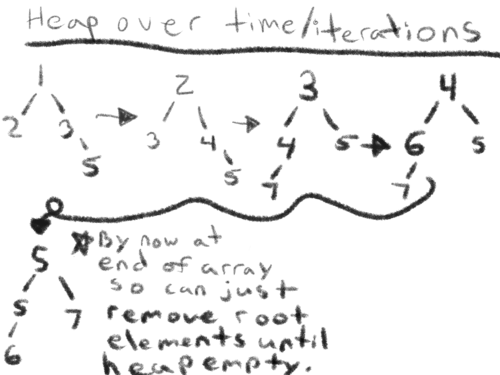 Heap over time/iterations
1 2 3 4
2 3 3 4 4 5 6 5
5 5 7 7
5
5 7
6
*By now at
end of array
so can just
remove root
elements until
heap empty.